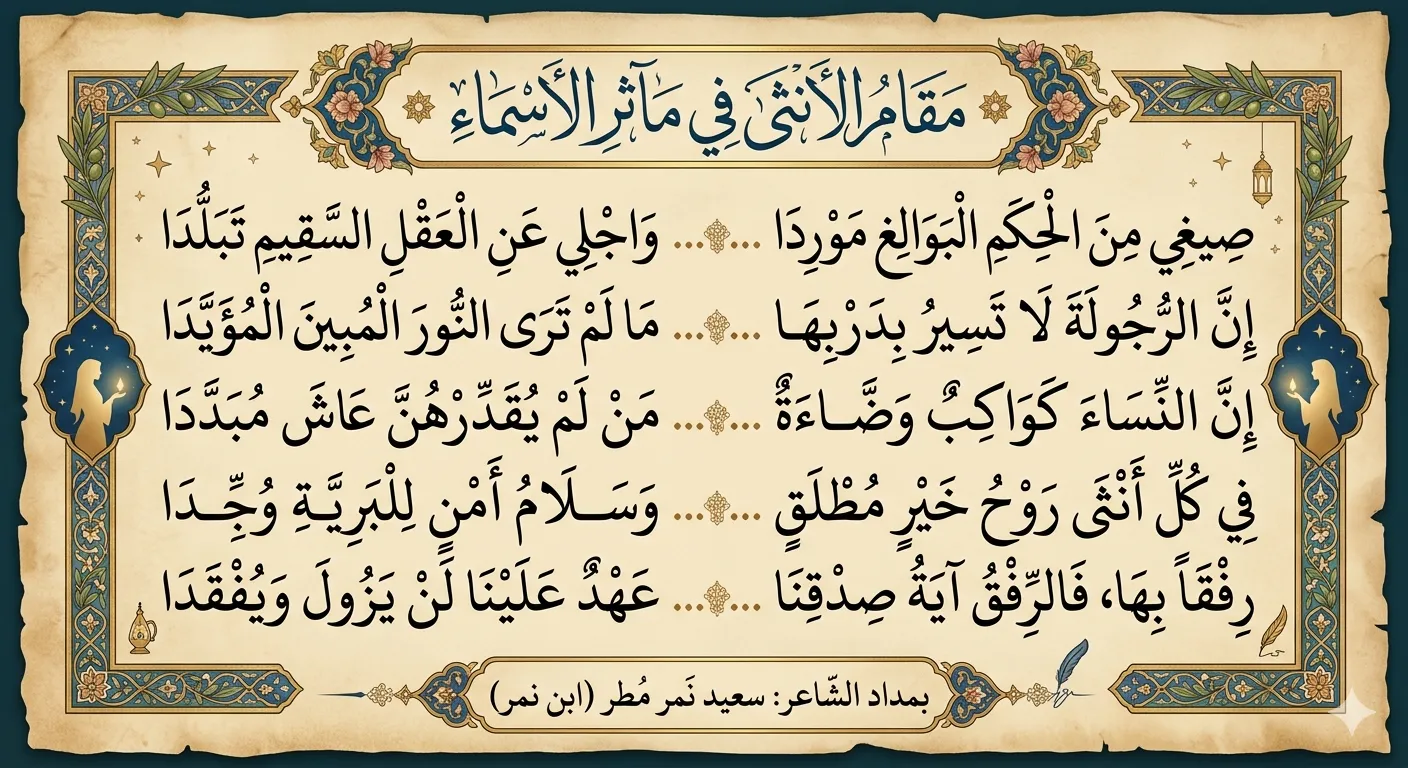 مَقَامُ الْأُنْثَى فِي مَآثِرِ الْأَسْمَاءِ
صِيغِي مِنَ الْحِكَمِ الْبَوَالِغِ مَوْرِدَا ... ... وَاجْلِي عَنِ الْعَقْلِ السَّقِيمِ تَبَلُّدَا
إِنَّ الرُّجُولَةَ لَا تَسِيرُ بِدَرْبِهَا ... ... مَا لَمْ تَرَى النُّورَ الْمُبِينَ الْمُؤَيَّدَا
إِنَّ النِّسَاءَ كَوَاكِبٌ وَضَّاءَةٌ ... ... مَنْ لَمْ يُقَدِّرْهُنَّ عَاشَ مُبَدَّدَا
فِي كُلِّ أَنْثَى رَوْحُ خَيْرٍ مُطْلَقٍ ... ... وَسَلَامُ أَمْنٍ لِلْبَرِيَّةِ وُجِّدَا
رِفْقَاً بِهَا، فَالرِّفْقُ آيَةُ صِدْقِنَا ... ... عَهْدٌ عَلَيْنَا لَنْ يَزُولَ وَيُفْقَدَا
بمداد الشّاعر: سعيد نَمر مُطر (ابن نمر)